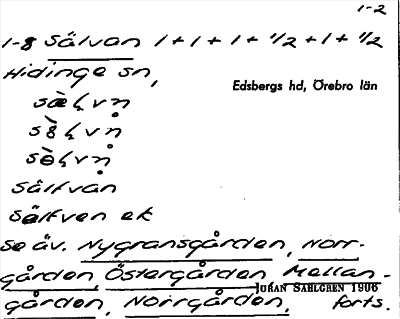 1-2
1-8 Sälvan 1+1+1+1/2+1+1/2
Hidinge sn,
Edsbergs hd, Örebro län
Sälfvan
Sälfven ek
Se äv. Nygransgården, Norr-
gården, Östergården Mellan-
JÖRAN SAHLGREN 1906
gården, Norrgården, forts.